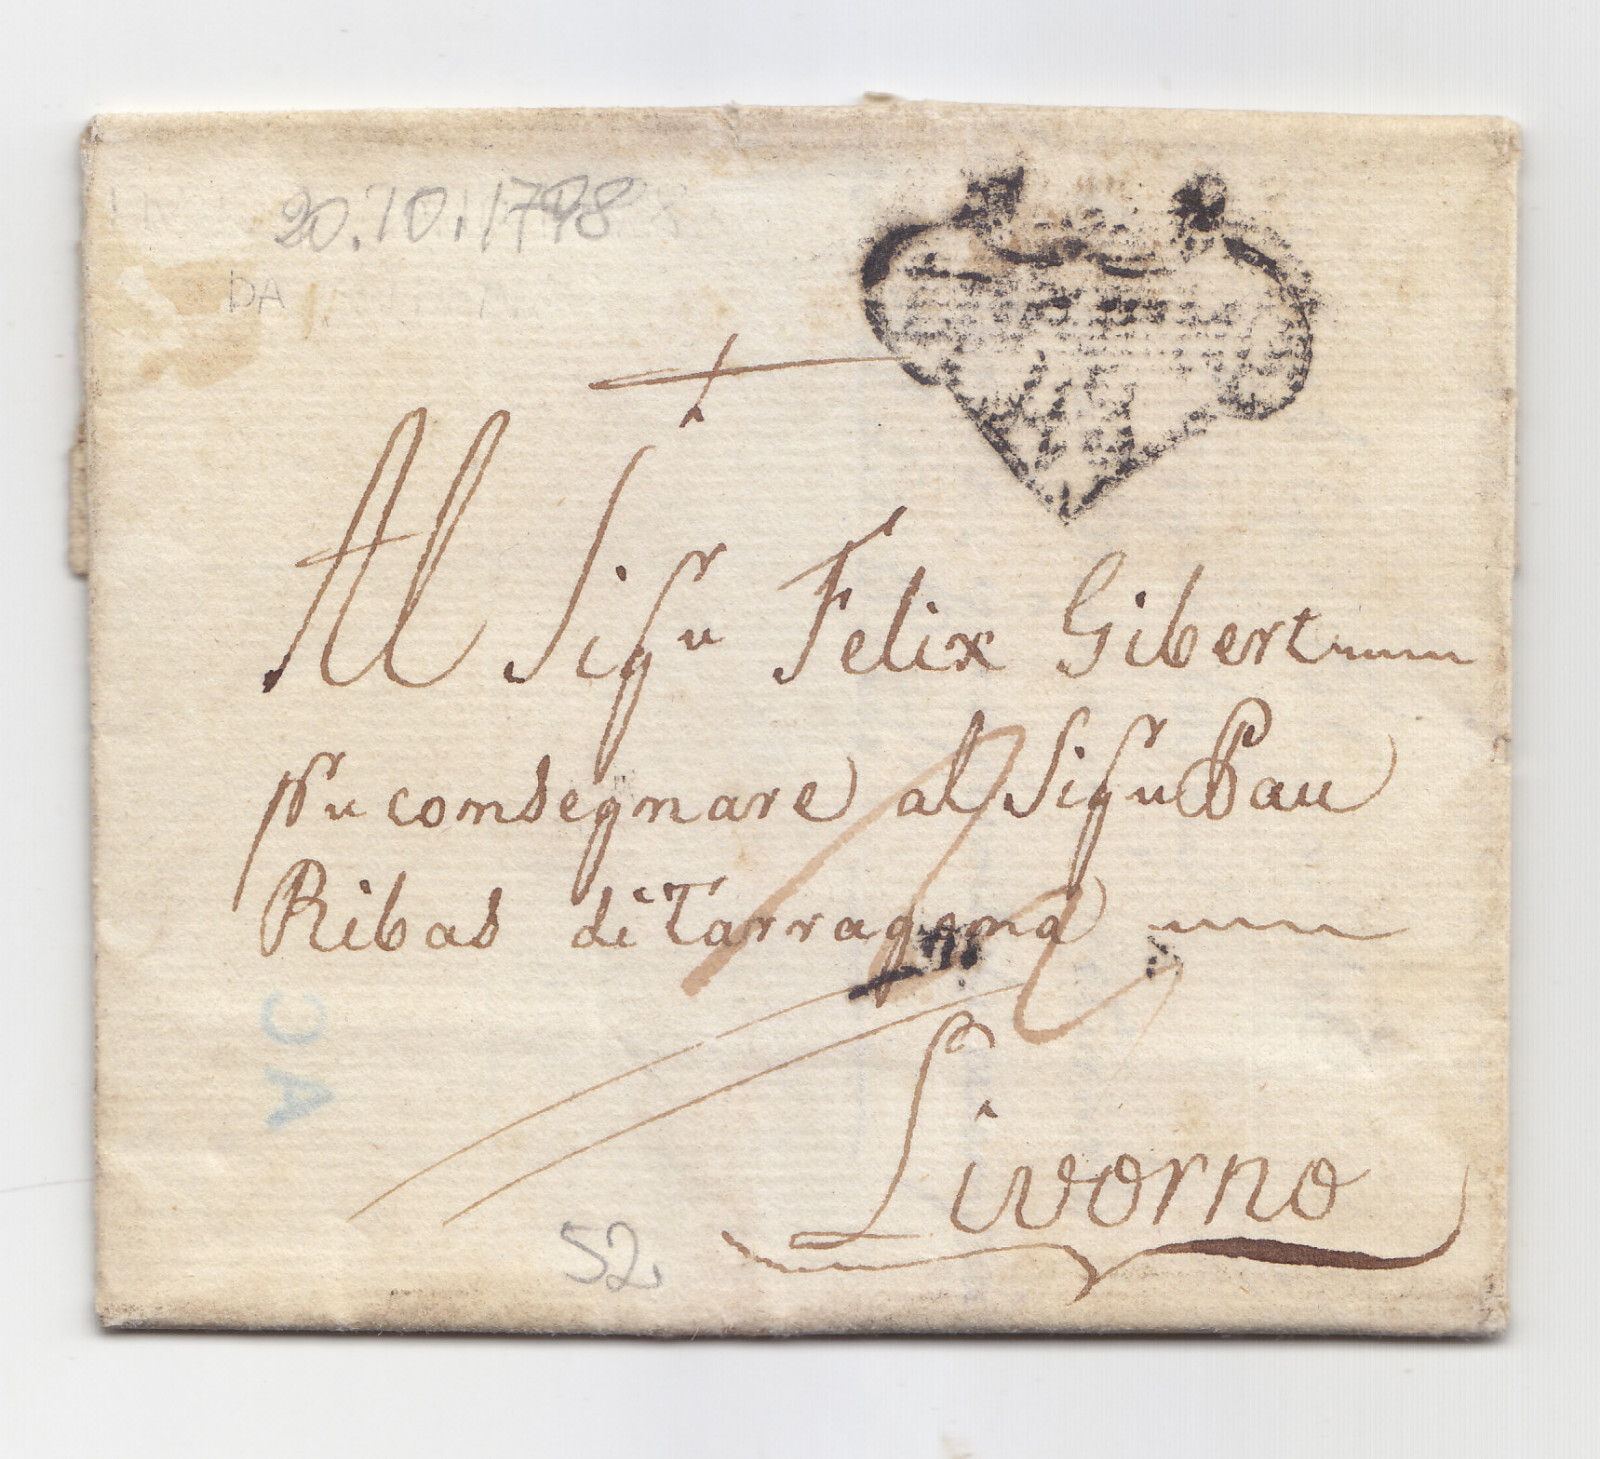 20.10.1798
DA
Al Sigr Felix Gibert
pr consegnare al Sigr Pau
Ribas di Tarragona
Livorno
52